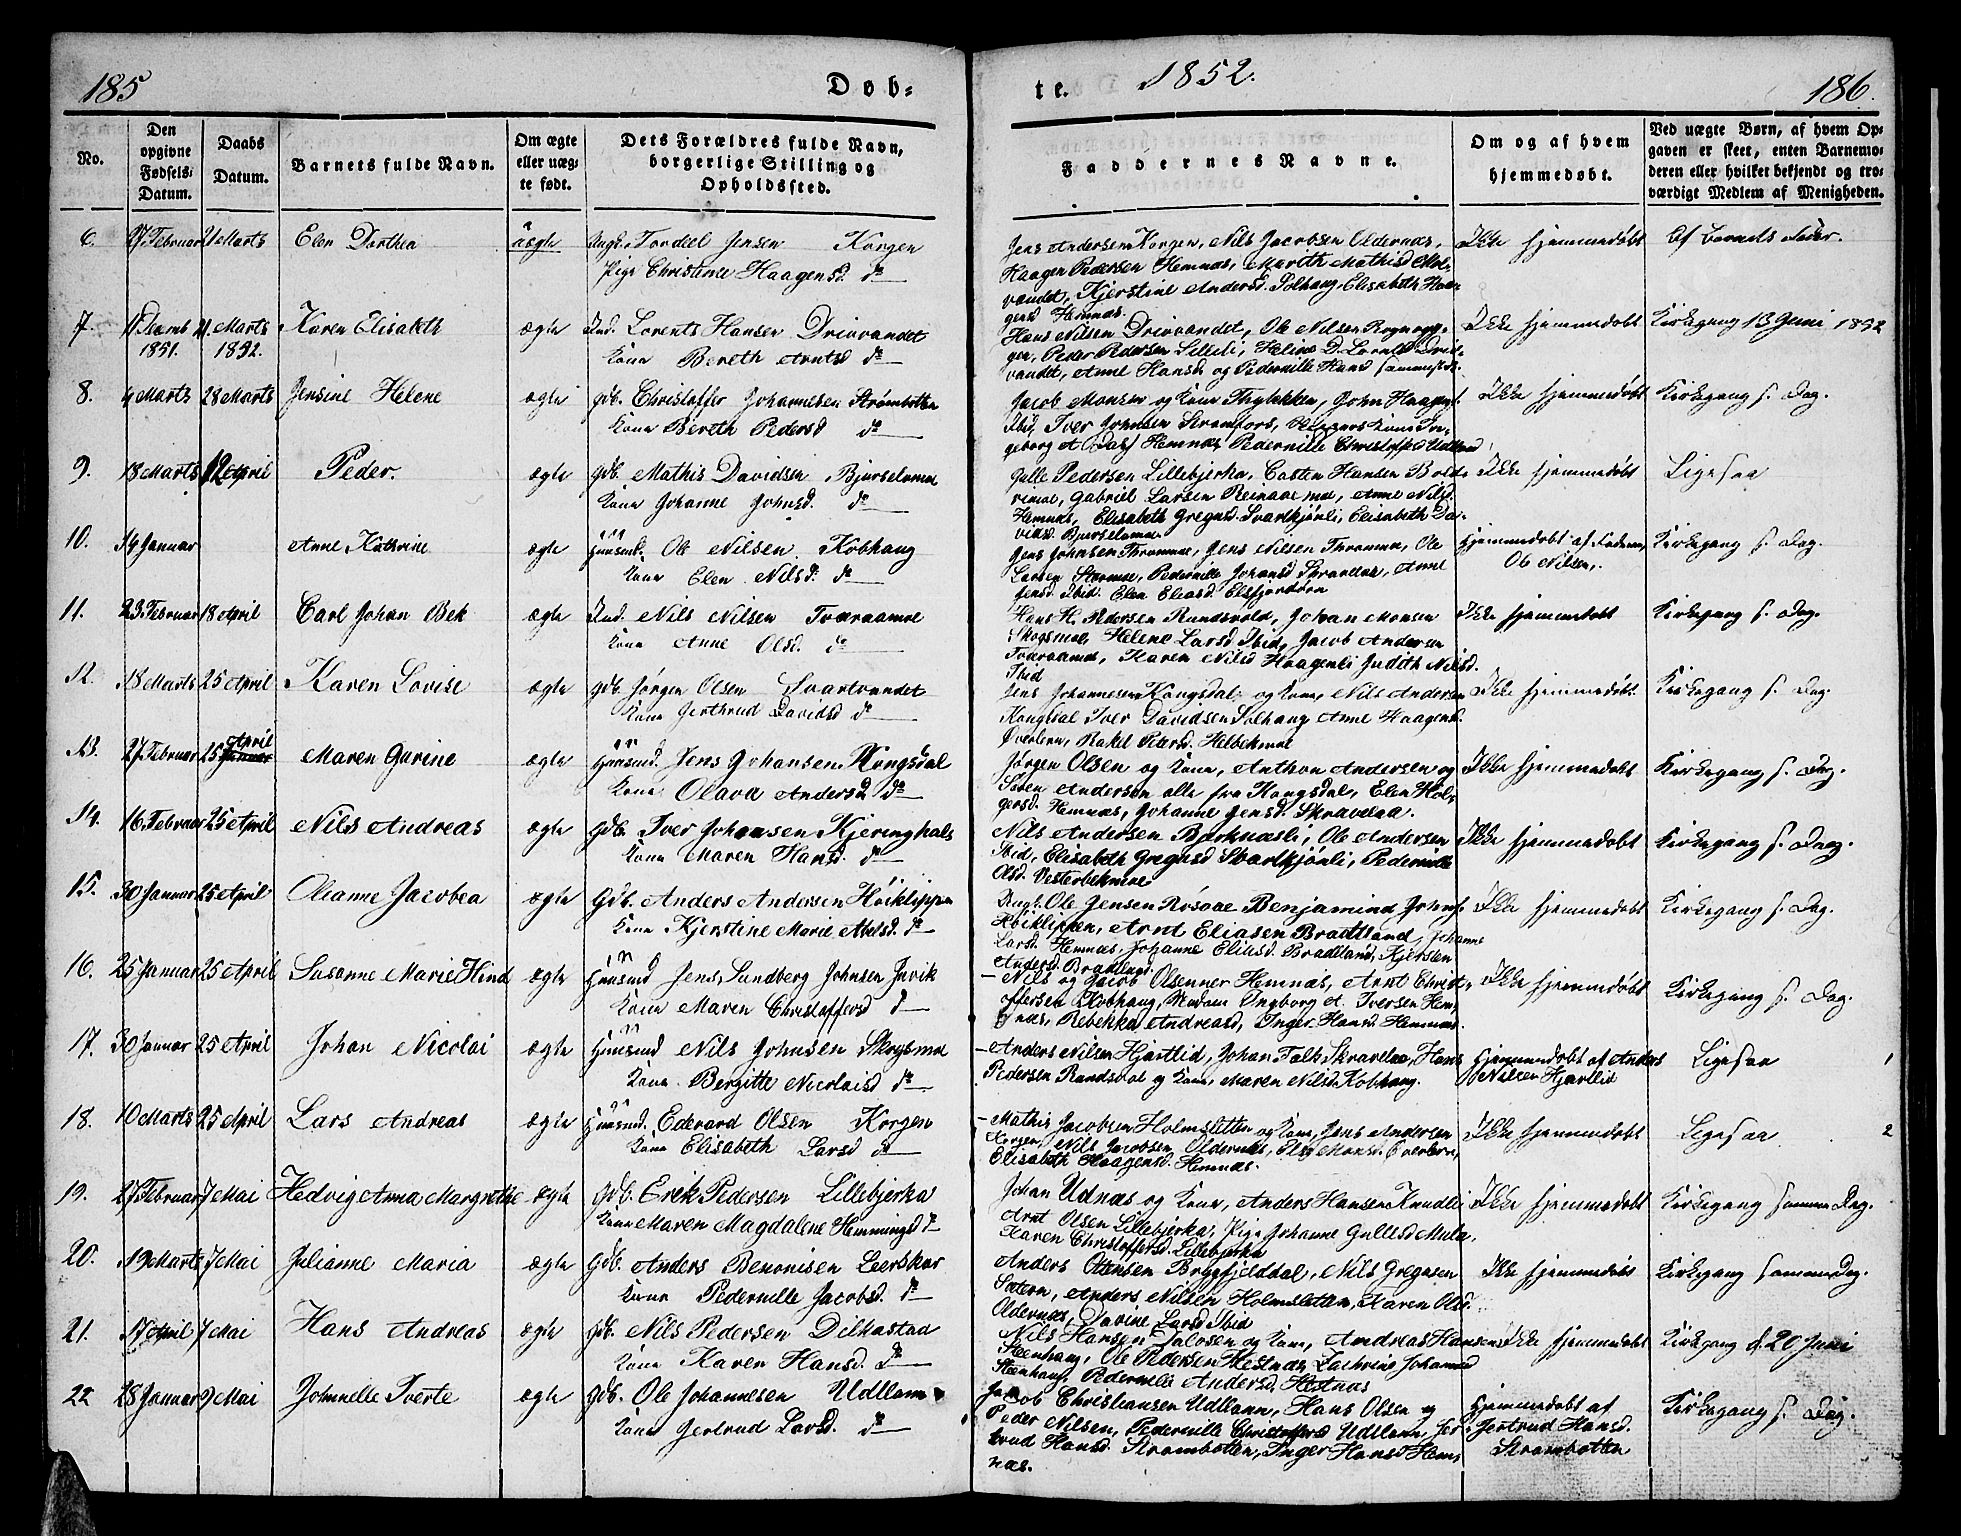 185
Døb-
te.
1852.
186.
No.
Den opgivne Fødsels-Datum.
Daabs Datum.
Barnets fulde Navn.
Om ægte eller uægte født.
Dets Forældres fulde Navn, borgerlige Stilling og Opholdssted.
Faddernes Navne.
Om og af hvem hjemmedøbt.
Ved uægte Børn, af hvem Opgaven er skeet, enten Barnemoderen eller hvilket bekjendt og troværdigt Medlem af Menigheden.
6. 27 Februar 21 Marts Elen Dorthea uægte Ungk. Tordeel Jensen Korgen
Pige Christine Haagensd. do
Jens Andersen Korgen, Nils Jacobsen Oldernæs,
Haagen Pedersen Hemnæs, Mareth Mathisd
vandet, Kjerstine Andersd. Solhaug, Elisabeth Haa-
gensd Hemnæs.
Ikke hjemmedøbt
Af Barnets Fader.
7. 1851. 21 Marts 1852. Karen Elisabeth ægte Ind. Lorents Hansen Drivvandet
Kone Bereth Arntsd do
Hans Nilsen Drivvandet, Ole Nilsen
Peder Pedersen Lillebi, Heline D. Driv-
vandet, Anne Hansd og Pedernille Hansd sammesteds
Ikke hjemmedøbt
Kirkegang 13 Juni 1852
8. 4 Marts 28 Marts Jensine Helene ægte Gdb. Christoffer Johannesen Strømbotten
Kone Bereth Pedersd do
Jacob Monsen og Kone John Haagens.
Ibid, Iver Johnsen Kone In-
geborg A. Hemnæs, Pedernille Christoffersd
Ikke hjemmedøbt
Kirkegang s. Dag.
9. 18 Marts 12 April Peder. ægte Gdb. Mathis Davidsen Bjurselvmoe
Kone Johanne Johnsd. do
Gulle Pedersen Lillebjerka, Casten Hansen
Gabriel Larsen Anne Nilsd.
Hemnæs, Elisabeth Gregusd. Svartkjønli, Elisabeth Da-
vidsd. Bjurselvmoe
Ikke hjemmedøbt
Ligesaa
10. 14 Januar Anne Kathrine ægte Huusmd. Ole Nilsen Kobhaug
Kone Elen Nilsd. do
Jens Johnsen Jens Nilsen Ole
Larsen Pedernille Johansd Skravelaa, Anne
Jensd Ibid. Elen Eliasd. Elsfjordøren
Hjemmedøbt af Faderen,
Ole Nilsen.
Kirkegang s. Dag.
11. 23 Februar 18 April Carl Johan Bek ægte Ind. Nils Nilsen Tværaamoe
Kone Anne Olsd. do
Hans H. Pedersen Johan Monsen
Skogsmoe, Helene Larsd Ibid, Jacob Andersen
Tværaamoe, Karen Nilsd Haagenli Judith Nilsd.
Ibid
Ikke hjemmedøbt
Kirkegang s. Dag.
12. 18 Marts 25 April Karen Lovise ægte Gdb. Jørgen Olsen Svartvandet
Kone Jerthrud Davidsd do
Jens Johannesen Kongsdal og Kone, Nils Andersen
Kongsdal Iver Davidsen Solhaug Anne Haagensd.
Øverleren, Rakel Petersd. Helbekmoe
Ikke hjemmedøbt
Kirkegang s. Dag.
13. 27 Februar 25 April Maren Gurine ægte Huusmd. Jens Johansen Kongsdal
Kone Olava Andersd do
Jørgen Olsen og Kone, Anthon Andersen og
Søren Andersen alle fra Kongsdal, Elen Hol-
gersd. Hemnæs, Johanne Jensd. Skravelaa.
Ikke hjemmedøbt
Kirkegang s. Dag.
14. 16 Februar 25 April Nils Andreas ægte Gdb. Iver Johansen Kjeringhals
Kone Maren Hansd. do
Nils Andersen Bjerknæsli, Ole Andersen
Ibid, Elisabeth Gregusd Svartkjønli, Pedernille
Olsd. Vesterbekmoe
Ikke hjemmedøbt
Kirkegang s. Dag.
15. 30 Januar 25 April Olianne Jacobea ægte Gdb. Anders Andersen Høiklippen
Kone Kjerstine Marie Abelsd. do
Ungk. Ole Jensen Røsaae Benjamind Johns.
Høiklippen, Arnt Eliasen Bradtland, Johanne
Larsd. Hemnæs, Johanne Eliasd. Bradtland, Kjersten
Andersd. Bradtland.
Ikke hjemmedøbt
Kirkegang s. Dag.
16. 25 Januar 25 April Susanne Marie Hind ægte Huusmd Jens Sundberg Johnsen Juvik
Kone Maren Christoffersd do
Nils og Jacob Olsenner Hemnæs, Arnt Christ-
offersen Kobhaug, Madam Ingborg A. Iversen Hem-
næs, Rebekka Andreasd, Inger Hansd Hemnæs.
Ikke hjemmedøbt
Kirkegang s. Dag.
17. 30 Januar 25 April Johan Nicolai ægte Huusmd Nils Johnsen Skogsmoe
Kone Bergitte Nicolaisd do
Anders Nilsen Hjartlid, Johan Falk Skravelaa, Hans
Pedersen og Kone, Maren Nilsd Kobhaug.
Hjemmedøbt af Anders
Nilsen Hjartlid
Ligesaa 1
18. 10 Marts 25 April Lars Andreas ægte Huusmd. Edevard Olsen Korgen
Kone Elisabeth Larsd do
Mathis Jacobsen Holmsletten og Kone, Jens Andersen
Korgen, Nils Jacobsen Oldernæs,
Elisabeth Haagensd. Hemnæs.
Ikke hjemmedøbt
Ligesaa 2
19. 27 Februar 7 Mai Hedvig Anna Margrethe ægte Gdb. Erek Pedersen Lillebjerka
Kone Maren Magdalene Hemmingsd do
Johan Udnæs og Kone, Anders Hansen Knudli
Arnt Olsen Lillebjerka, Pige Johanne Gullesd Mula,
Karen Christoffersd. Lillebjerka
Ikke hjemmedøbt
Kirkegang samme Dag.
20. 19 Marts 7 Mai Julianne Maria ægte Gdb. Anders Benonisen Leerskar
Kone Pedernille Jacobsd. do
Anders Ottensen Brygfjelddal, Nils Gregusen
Sætern, Anders Nilsen Holmsletten, Karen Olsd.
Oldernæs, Davine Larsd Ibid
Ikke hjemmedøbt
Kirkegang samme Dag.
21. 17 April 7 Mai Hans Andreas ægte Gdb. Nils Pedersen Dilkestad
Kone Karen Hansd. do
Nils Hansen og Kone, Andreas Hansen
Steenhaug, Ole Pedersen Hestnæs, Johannesd
Steenhaug, Pedernille Andersd. Hestnæs
Ikke hjemmedøbt
Kirkegang d. 20 Juni
22 28 Januar 9 Mai Johnelle Tverte ægte Gdb. Ole Johannesen Udlleirn
Kone Gertrud Larsd. do
Jacob Christiansen Hans Olsen og
Peder Nilsen, Pedernille Christoffersd Jer-
trud Hansd. Strømbotten, Inger Hansd Hem-
næs.
Hjemmedøbt af
Gjertrud Hansd.
Strømbotten
Kirkegang s. Dag.